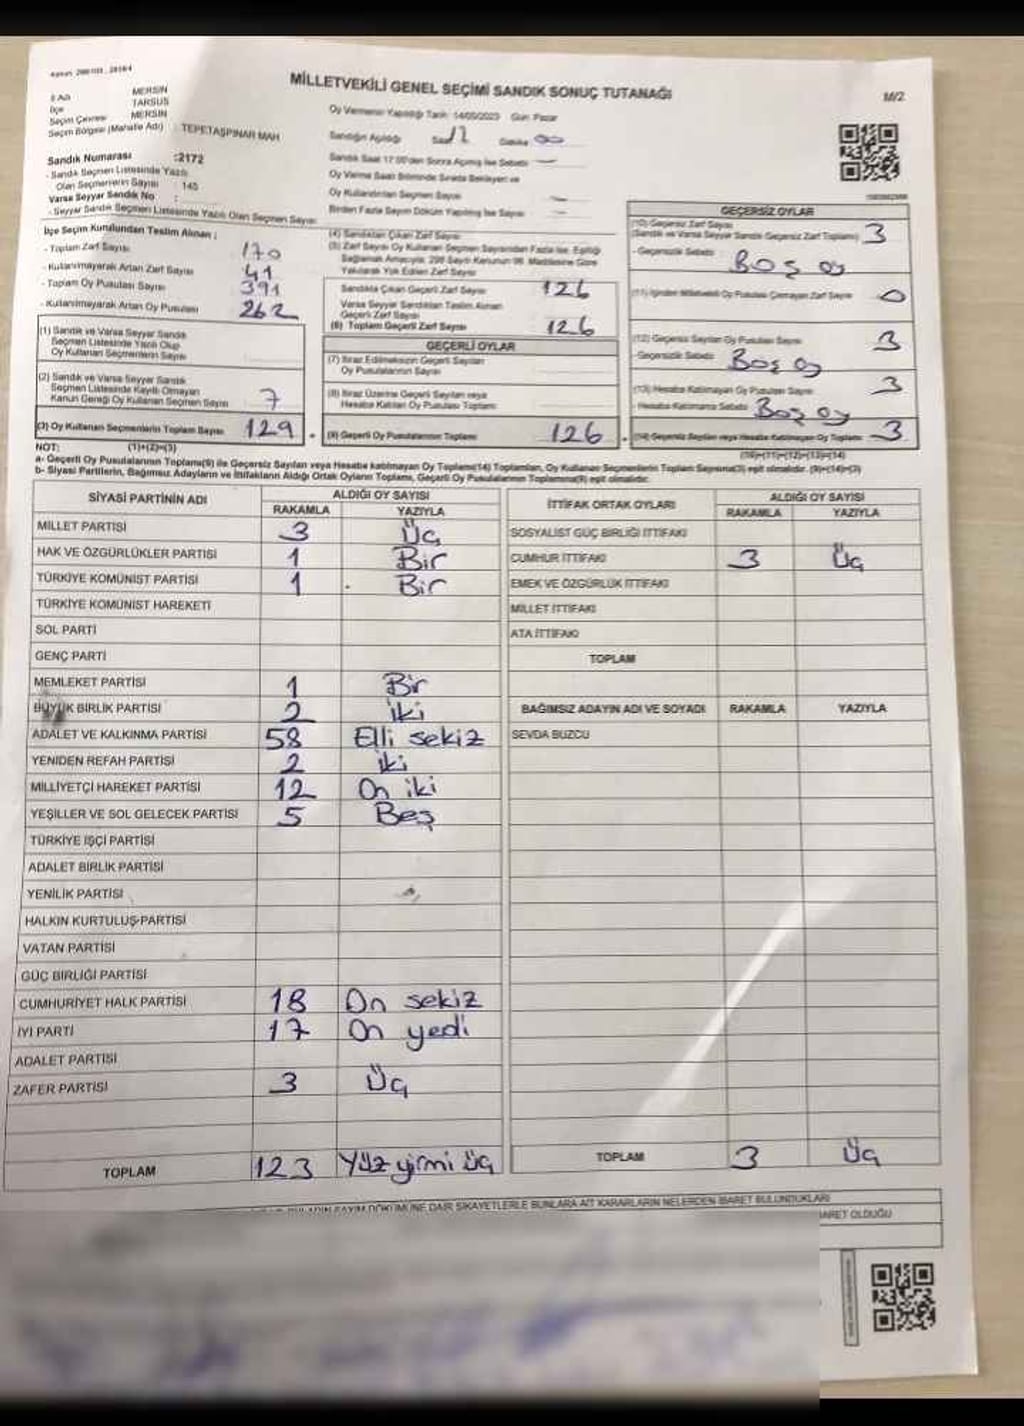 MİLLETVEKİLİ GENEL SEÇİMİ SANDIK SONUÇ TUTANAĞI
M/2
İl Adı MERSİN
İlçe TARSUS
Seçim Çevresi MERSİN
Seçim Bölgesi (Mahalle Adı) : TEPETAŞPINAR MAH
Oy Vermenin Yapıldığı Tarih: 14/05/2023 Gün: Pazar
Sandığın Açıldığı Saat 17 Dakika 00
Sandık Saat 17:00'den Sonra Açılmış İse Sebebi —
Oy Verme Saati Bitiminde Sırada Bekleyen ve
Oy Kullandırılan Seçmen Sayısı —
Birden Fazla Sayım Döküm Yapılmış İse Sayısı —
Sandık Numarası :2172
- Sandık Seçmen Listesinde Yazılı
Olan Seçmenlerin Sayısı : 145
Varsa Seyyar Sandık No :
- Seyyar Sandık Seçmen Listesinde Yazılı Olan Seçmen Sayısı:
İlçe Seçim Kurulundan Teslim Alınan :
- Toplam Zarf Sayısı 170
- Kullanılmayarak Artan Zarf Sayısı 41
- Toplam Oy Pusulası Sayısı 391
- Kullanılmayarak Artan Oy Pusulası 262
(1) Sandık ve Varsa Seyyar Sandık
Seçmen Listesinde Yazılı Olup
Oy Kullanan Seçmenlerin Sayısı
(2) Sandık ve Varsa Seyyar Sandık
Seçmen Listesinde Kayıtlı Olmayan
Kanun Gereği Oy Kullanan Seçmen Sayısı 7
(3) Oy Kullanan Seçmenlerin Toplam Sayısı 129
(1)+(2)=(3)
(4) Sandıktan Çıkan Zarf Sayısı
(5) Zarf Sayısı Oy Kullanan Seçmen Sayısından Fazla İse, Eşitliği
Sağlamak Amacıyla, 298 Sayılı Kanunun 98. Maddesine Göre
Yakılarak Yok Edilen Zarf Sayısı
Sandıkta Çıkan Geçerli Zarf Sayısı 126
Varsa Seyyar Sandıktan Teslim Alınan
Geçerli Zarf Sayısı
(6) Toplam Geçerli Zarf Sayısı 126
GEÇERLİ OYLAR
(7) İtiraz Edilmeksizin Geçerli Sayılan
Oy Pusulalarının Sayısı
(8) İtiraz Üzerine Geçerli Sayılan veya
Hesaba Katılan Oy Pusulası Toplamı
(9) Geçerli Oy Pusulalarının Toplamı 126
GEÇERSİZ OYLAR
(10) Geçersiz Zarf Sayısı
(Sandık ve Varsa Seyyar Sandık Geçersiz Zarf Toplamı) 3
- Geçersizlik Sebebi : Boş oy
(11) İçinden Milletvekili Oy Pusulası Çıkmayan Zarf Sayısı 0
(12) Geçersiz Sayılan Oy Pusulası Sayısı 3
- Geçersizlik Sebebi : Boş oy
(13) Hesaba Katılmayan Oy Pusulası Sayısı 3
- Hesaba Katılmama Sebebi : Boş oy
(14) Geçersiz Sayılan veya Hesaba Katılmayan Oy Toplamı 3
(10)+(11)+(12)+(13)=(14)
NOT:
a- Geçerli Oy Pusulalarının Toplamı(9) ile Geçersiz Sayılan veya Hesaba katılmayan Oy Toplamı(14) Toplamları, Oy Kullanan Seçmenlerin Toplam Sayısına(3) eşit olmalıdır. (9)+(14)=(3)
b- Siyasi Partilerin, Bağımsız Adayların ve İttifakların Aldığı Ortak Oyların Toplamı, Geçerli Oy Pusulalarının Toplamına(9) eşit olmalıdır.
SİYASİ PARTİNİN ADI ALDIĞI OY SAYISI
RAKAMLA YAZIYLA
MİLLET PARTİSİ 3 Üç
HAK VE ÖZGÜRLÜKLER PARTİSİ 1 Bir
TÜRKİYE KOMÜNİST PARTİSİ 1 Bir
TÜRKİYE KOMÜNİST HAREKETİ
SOL PARTİ
GENÇ PARTİ
MEMLEKET PARTİSİ 1 Bir
BÜYÜK BİRLİK PARTİSİ 2 iki
ADALET VE KALKINMA PARTİSİ 58 Elli sekiz
YENİDEN REFAH PARTİSİ 2 iki
MİLLİYETÇİ HAREKET PARTİSİ 12 On iki
YEŞİLLER VE SOL GELECEK PARTİSİ 5 Beş
TÜRKİYE İŞÇİ PARTİSİ
ADALET BİRLİK PARTİSİ
YENİLİK PARTİSİ
HALKIN KURTULUŞ PARTİSİ
VATAN PARTİSİ
GÜÇ BİRLİĞİ PARTİSİ
CUMHURİYET HALK PARTİSİ 18 On sekiz
İYİ PARTİ 17 On yedi
ADALET PARTİSİ
ZAFER PARTİSİ 3 Üç
TOPLAM 123 Yüz yirmi üç
İTTİFAK ORTAK OYLARI ALDIĞI OY SAYISI
RAKAMLA YAZIYLA
SOSYALİST GÜÇ BİRLİĞİ İTTİFAKI
CUMHUR İTTİFAKI 3 Üç
EMEK VE ÖZGÜRLÜK İTTİFAKI
MİLLET İTTİFAKI
ATA İTTİFAKI
TOPLAM
BAĞIMSIZ ADAYIN ADI VE SOYADI RAKAMLA YAZIYLA
SEVDA BUZCU
TOPLAM 3 Üç
SAYIM DÖKÜMÜNE DAİR ŞİKAYETLERLE BUNLARA AİT KARARLARIN NELERDEN İBARET BULUNDUKLARI
OLDUĞU